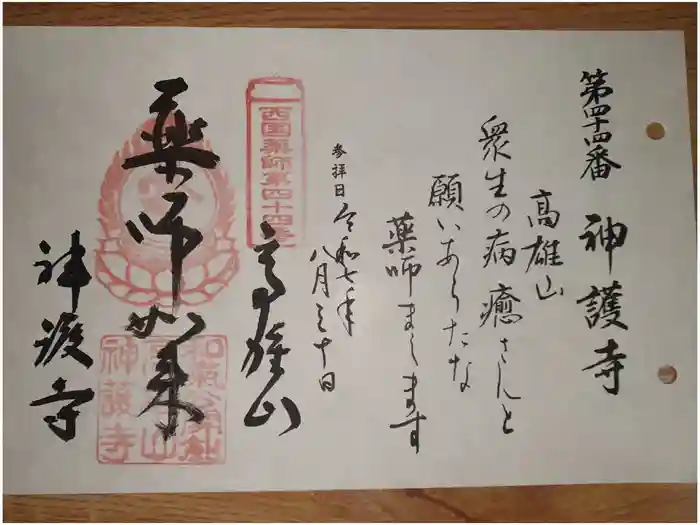 第四十四番 神護寺
高雄山
衆生の病癒さんと
願いあらたな
薬師まします
参拝日 令和七年
八月三十日
西国薬師第四十四番
高雄山
薬師如来
神護寺
神護寺